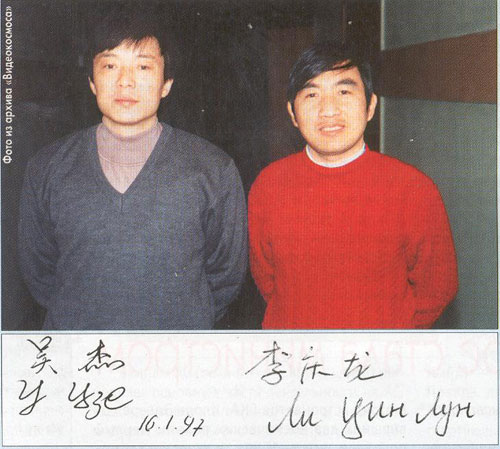 Фото из архива «Видеокосмоса»
吴 杰
У Цзе
16.1.97
李庆龙
Ли Цин Лун